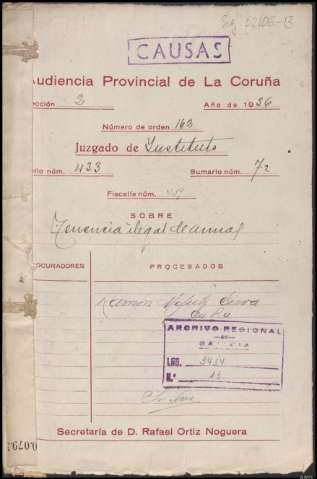 CAUSAS
Audiencia Provincial de La Coruña
cción 2 Año de 1936
Número de orden 163
Juzgado de Instituto
lio núm. 433 Sumario núm. 72
Fiscalía núm.
SOBRE
Tenencia ilegal de armas
OCURADORES PROCESADOS
Ramón
ARCHIVO REGIONAL
DE
GALICIA
LEG. 3414
N.º 13
Secretaría de D. Rafael Ortiz Noguera